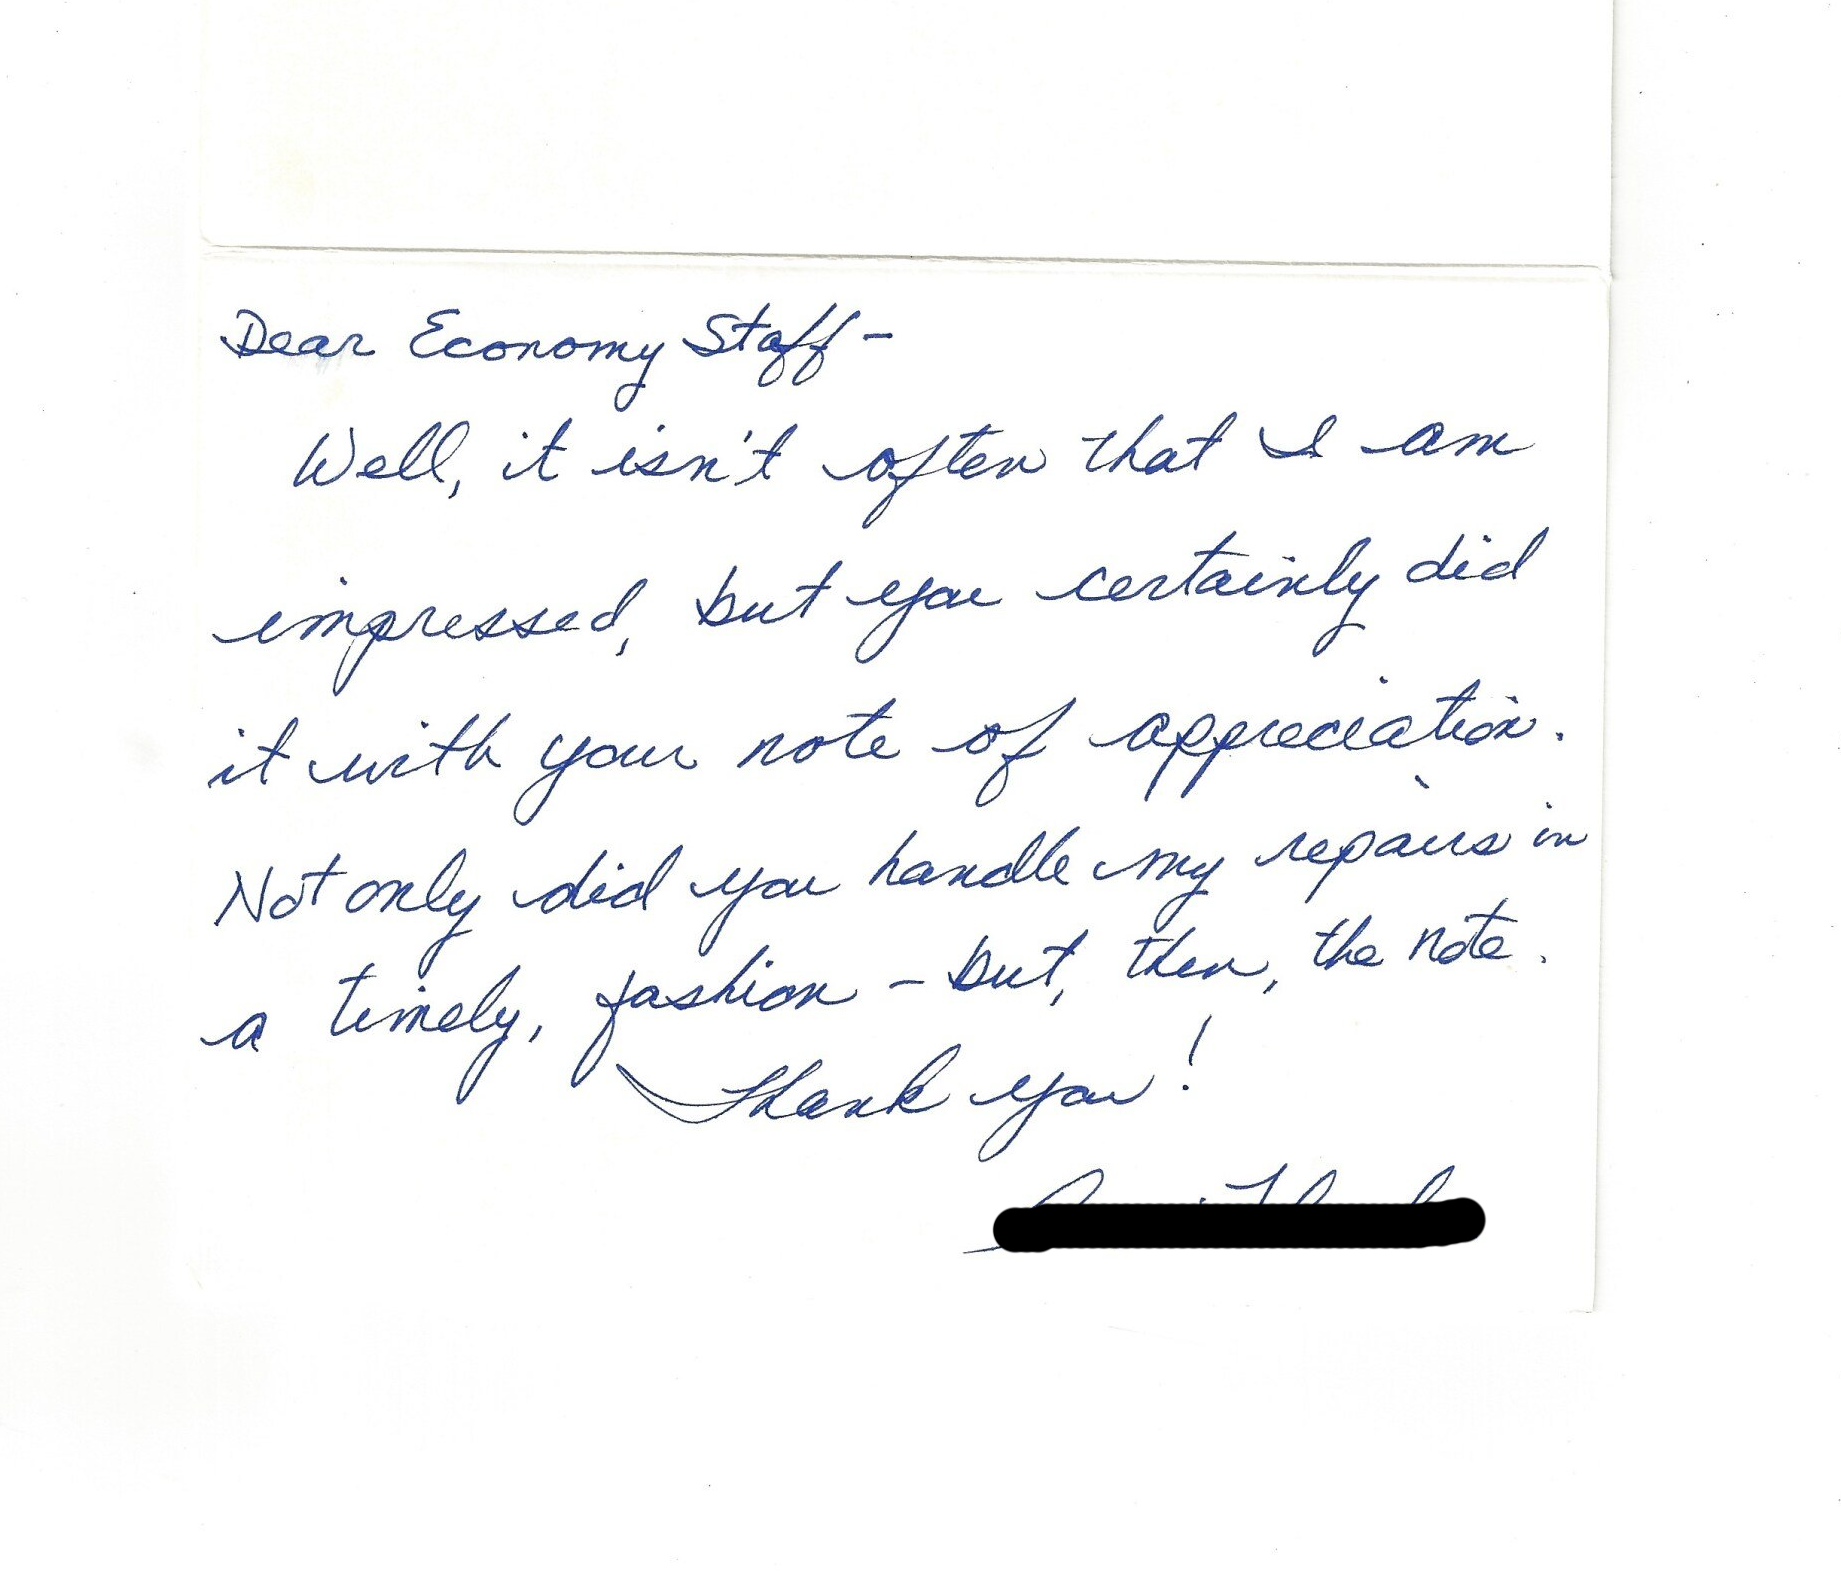 Dear Economy Staff -
Well, it isn't often that I am
impressed, but you certainly did
it with your note of appreciation.
Not only did you handle my repairs in
a timely, fashion - but, then, the note.
Thank you!